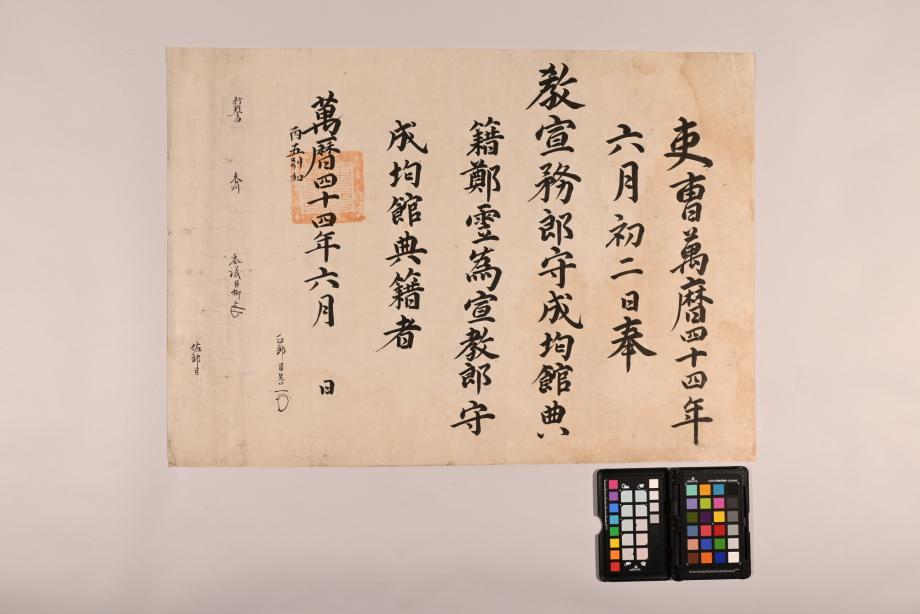 吏曹萬曆四十四年
六月初二日奉
教宣務郎守成均館典
籍鄭雲爲宣教郎守
成均館典籍者
萬曆四十四年六月 日
丙五別加
行判書
參判
參議臣柳
正郎臣
佐郎臣